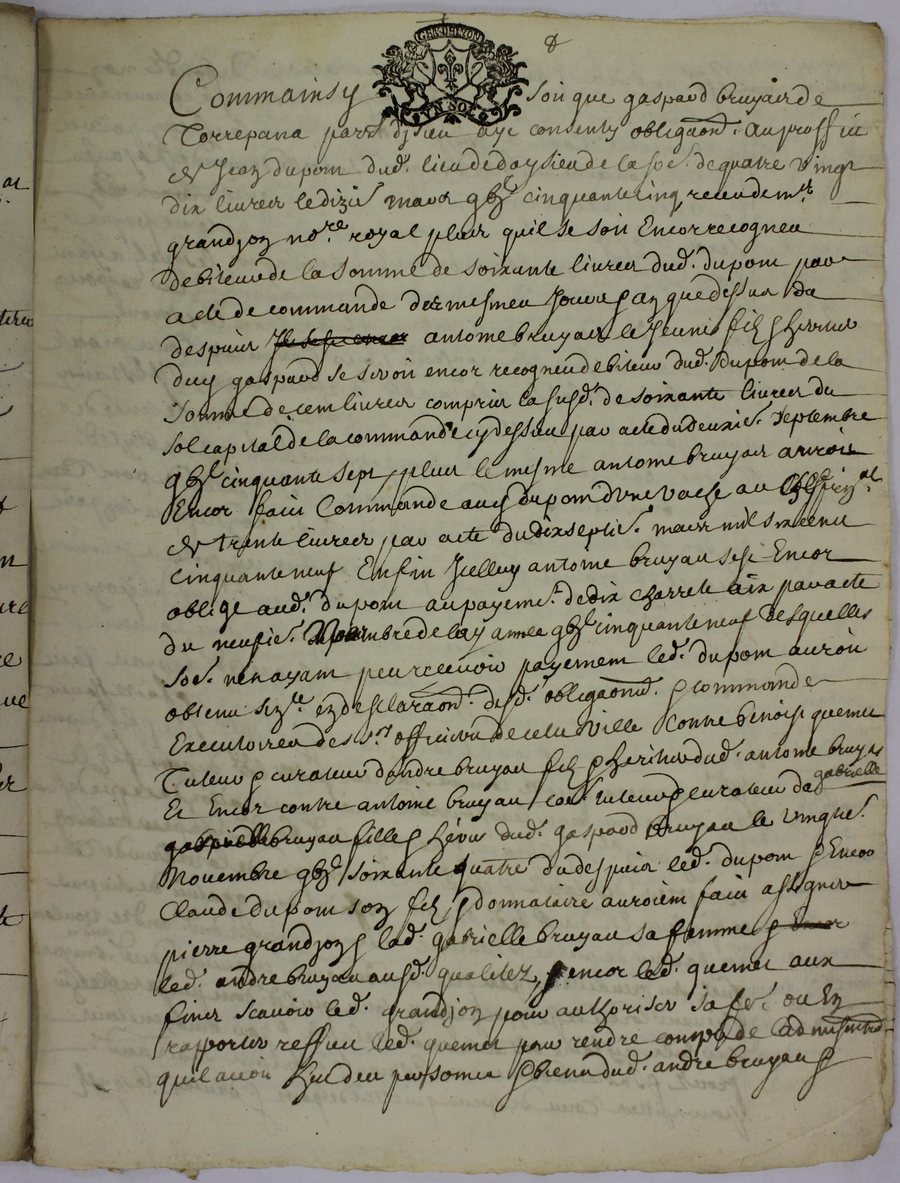 GEN DE LYON
VN SOL
Comm ainsy soit que gaspard bruyas de
Torrepana parr d'Isieu aye consenty obligaon. au proffit
de Jean dupont dud. lieu de doysieu de la soe. de quatre vingt
dix livres le dizie. mars gbic cinquante cinq receu de mre
grandjon nore. royal plus quil se soit Encor recogneu
debiteur de la somme de soixante livres dud. dupont par
acte de commande des mesmes Jour an que dessus
despuis antoine bruyas le jeune fils & heritier
duy gaspard se seroit encor recogneu debiteur dud. Dupont de la
somme de cent livres compris la susd. de soixante livres du
sol capital de la commande cy dessus par acte du deuxie. Septembre
gbic cinquante sept, plus le mesme antoine bruyas auroit
Encor fait Commande aud. dupont d'une vache au
de trente livres par acte du dix septie. mars mil six cent
cinquante neuf Enfin Icelluy antoine bruyas sest Encor
oblige aud. dupont au payemt. de dix charrete aix par acte
du neufie. novembre de lay. année gbic cinquante neuf desquelles
soe. nen ayant peu recevoir payement led. dupont auroit
obtenu en desclaraon. desd. obligaons. & commande
Executoires des srs. officiers de cette ville contre benoist quemet
Tuteur & curateur d'andre bruyas fils & heritier dud. antoine bruyas
Et Encor contre antoine bruyas tuteur & curateur de gabrielle
gabrielle bruyas fille & hérit. dud. gaspard bruyas le vingtie.
Novembre gbic soixante quatre du despuis led. dupont & Encor
Claude dupont son fils & donnataire auroient fait assigner
pierre grandjon & lad. gabrielle bruyas sa famme & Encor
led. andre bruyas ausd. qualitez, & encor led. quemet aux
fines scavoir led. grandjon pour authoriser sa fe. ou En
rapporter reffus led. quemet pour rendre compte de ladministraon.
quil a eu des personnes & biens dud. andre bruyas &